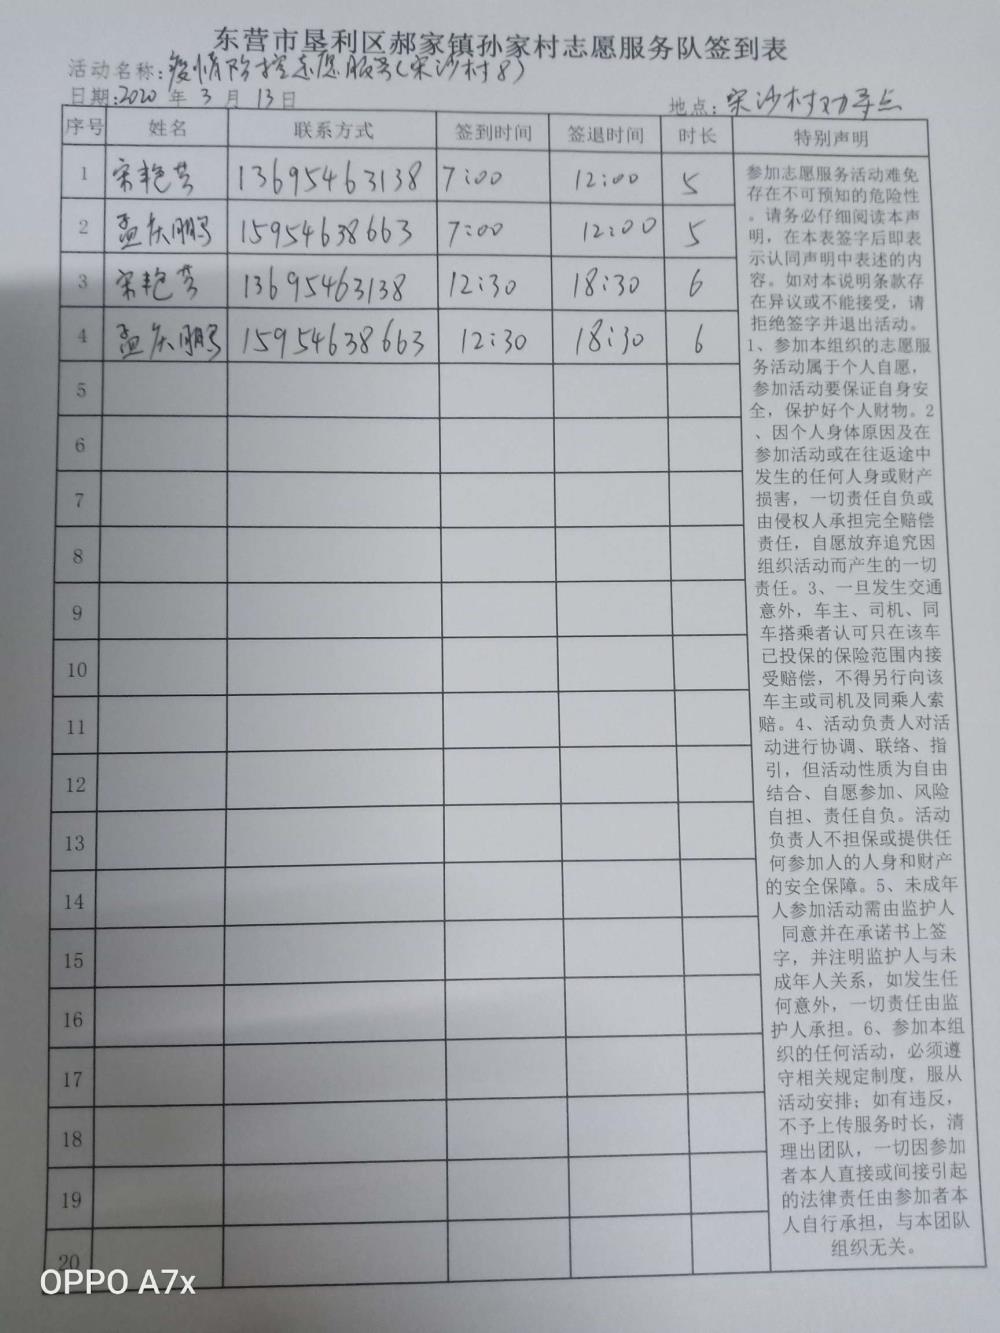 东营市垦利区郝家镇孙家村志愿服务队签到表
活动名称:疫情防控志愿服务(宋沙村8)
日期:2020 年 3 月 13 日 地点:宋沙村劝导点
序号 姓名 联系方式 签到时间 签退时间 时长 特别声明
1 宋艳芳 13695463138 7:00 12:00 5
2 孟庆鹏 15954638663 7:00 12:00 5
3 宋艳芳 13695463138 12:30 18:30 6
4 孟庆鹏 15954638663 12:30 18:30 6
5
6
7
8
9
10
11
12
13
14
15
16
17
18
19
20
参加志愿服务活动难免
存在不可预知的危险性
。请务必仔细阅读本声
明，在本表签字后即表
示认同声明中表述的内
容。如对本说明条款存
在异议或不能接受，请
拒绝签字并退出活动。
1、参加本组织的志愿服
务活动属于个人自愿，
参加活动要保证自身安
全，保护好个人财物。2
、因个人身体原因及在
参加活动或在往返途中
发生的任何人身或财产
损害，一切责任自负或
由侵权人承担完全赔偿
责任，自愿放弃追究因
组织活动而产生的一切
责任。3、一旦发生交通
意外，车主、司机、同
车搭乘者认可只在该车
已投保的保险范围内接
受赔偿，不得另行向该
车主或司机及同乘人索
赔。4、活动负责人对活
动进行协调、联络、指
引，但活动性质为自由
结合、自愿参加、风险
自担、责任自负。活动
负责人不担保或提供任
何参加人的人身和财产
的安全保障。5、未成年
人参加活动需由监护人
同意并在承诺书上签
字，并注明监护人与未
成年人关系，如发生任
何意外，一切责任由监
护人承担。6、参加本组
织的任何活动，必须遵
守相关规定制度，服从
活动安排；如有违反，
不予上传服务时长，清
理出团队，一切因参加
者本人直接或间接引起
的法律责任由参加者本
人自行承担，与本团队
组织无关。
OPPO A7x